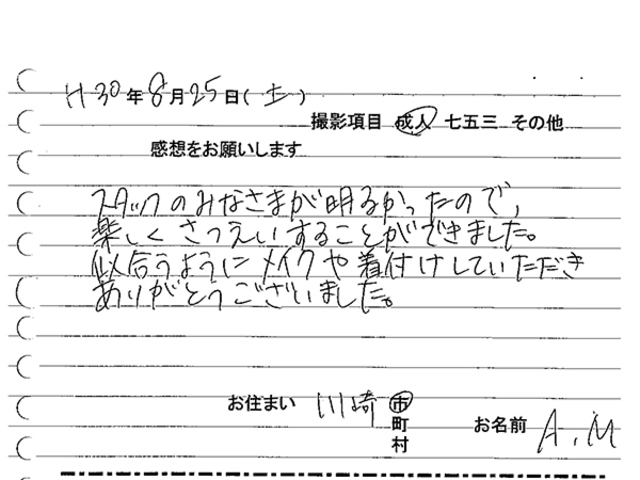 H30年8月25日(土)
撮影項目 成人 七五三 その他
感想をお願いします
スタッフのみなさまが明るかったので、
楽しくさつえいすることができました。
似合うようにメイクや着付けしていただき
ありがとうございました。
お住まい 川崎 市
町
村
お名前 A.M